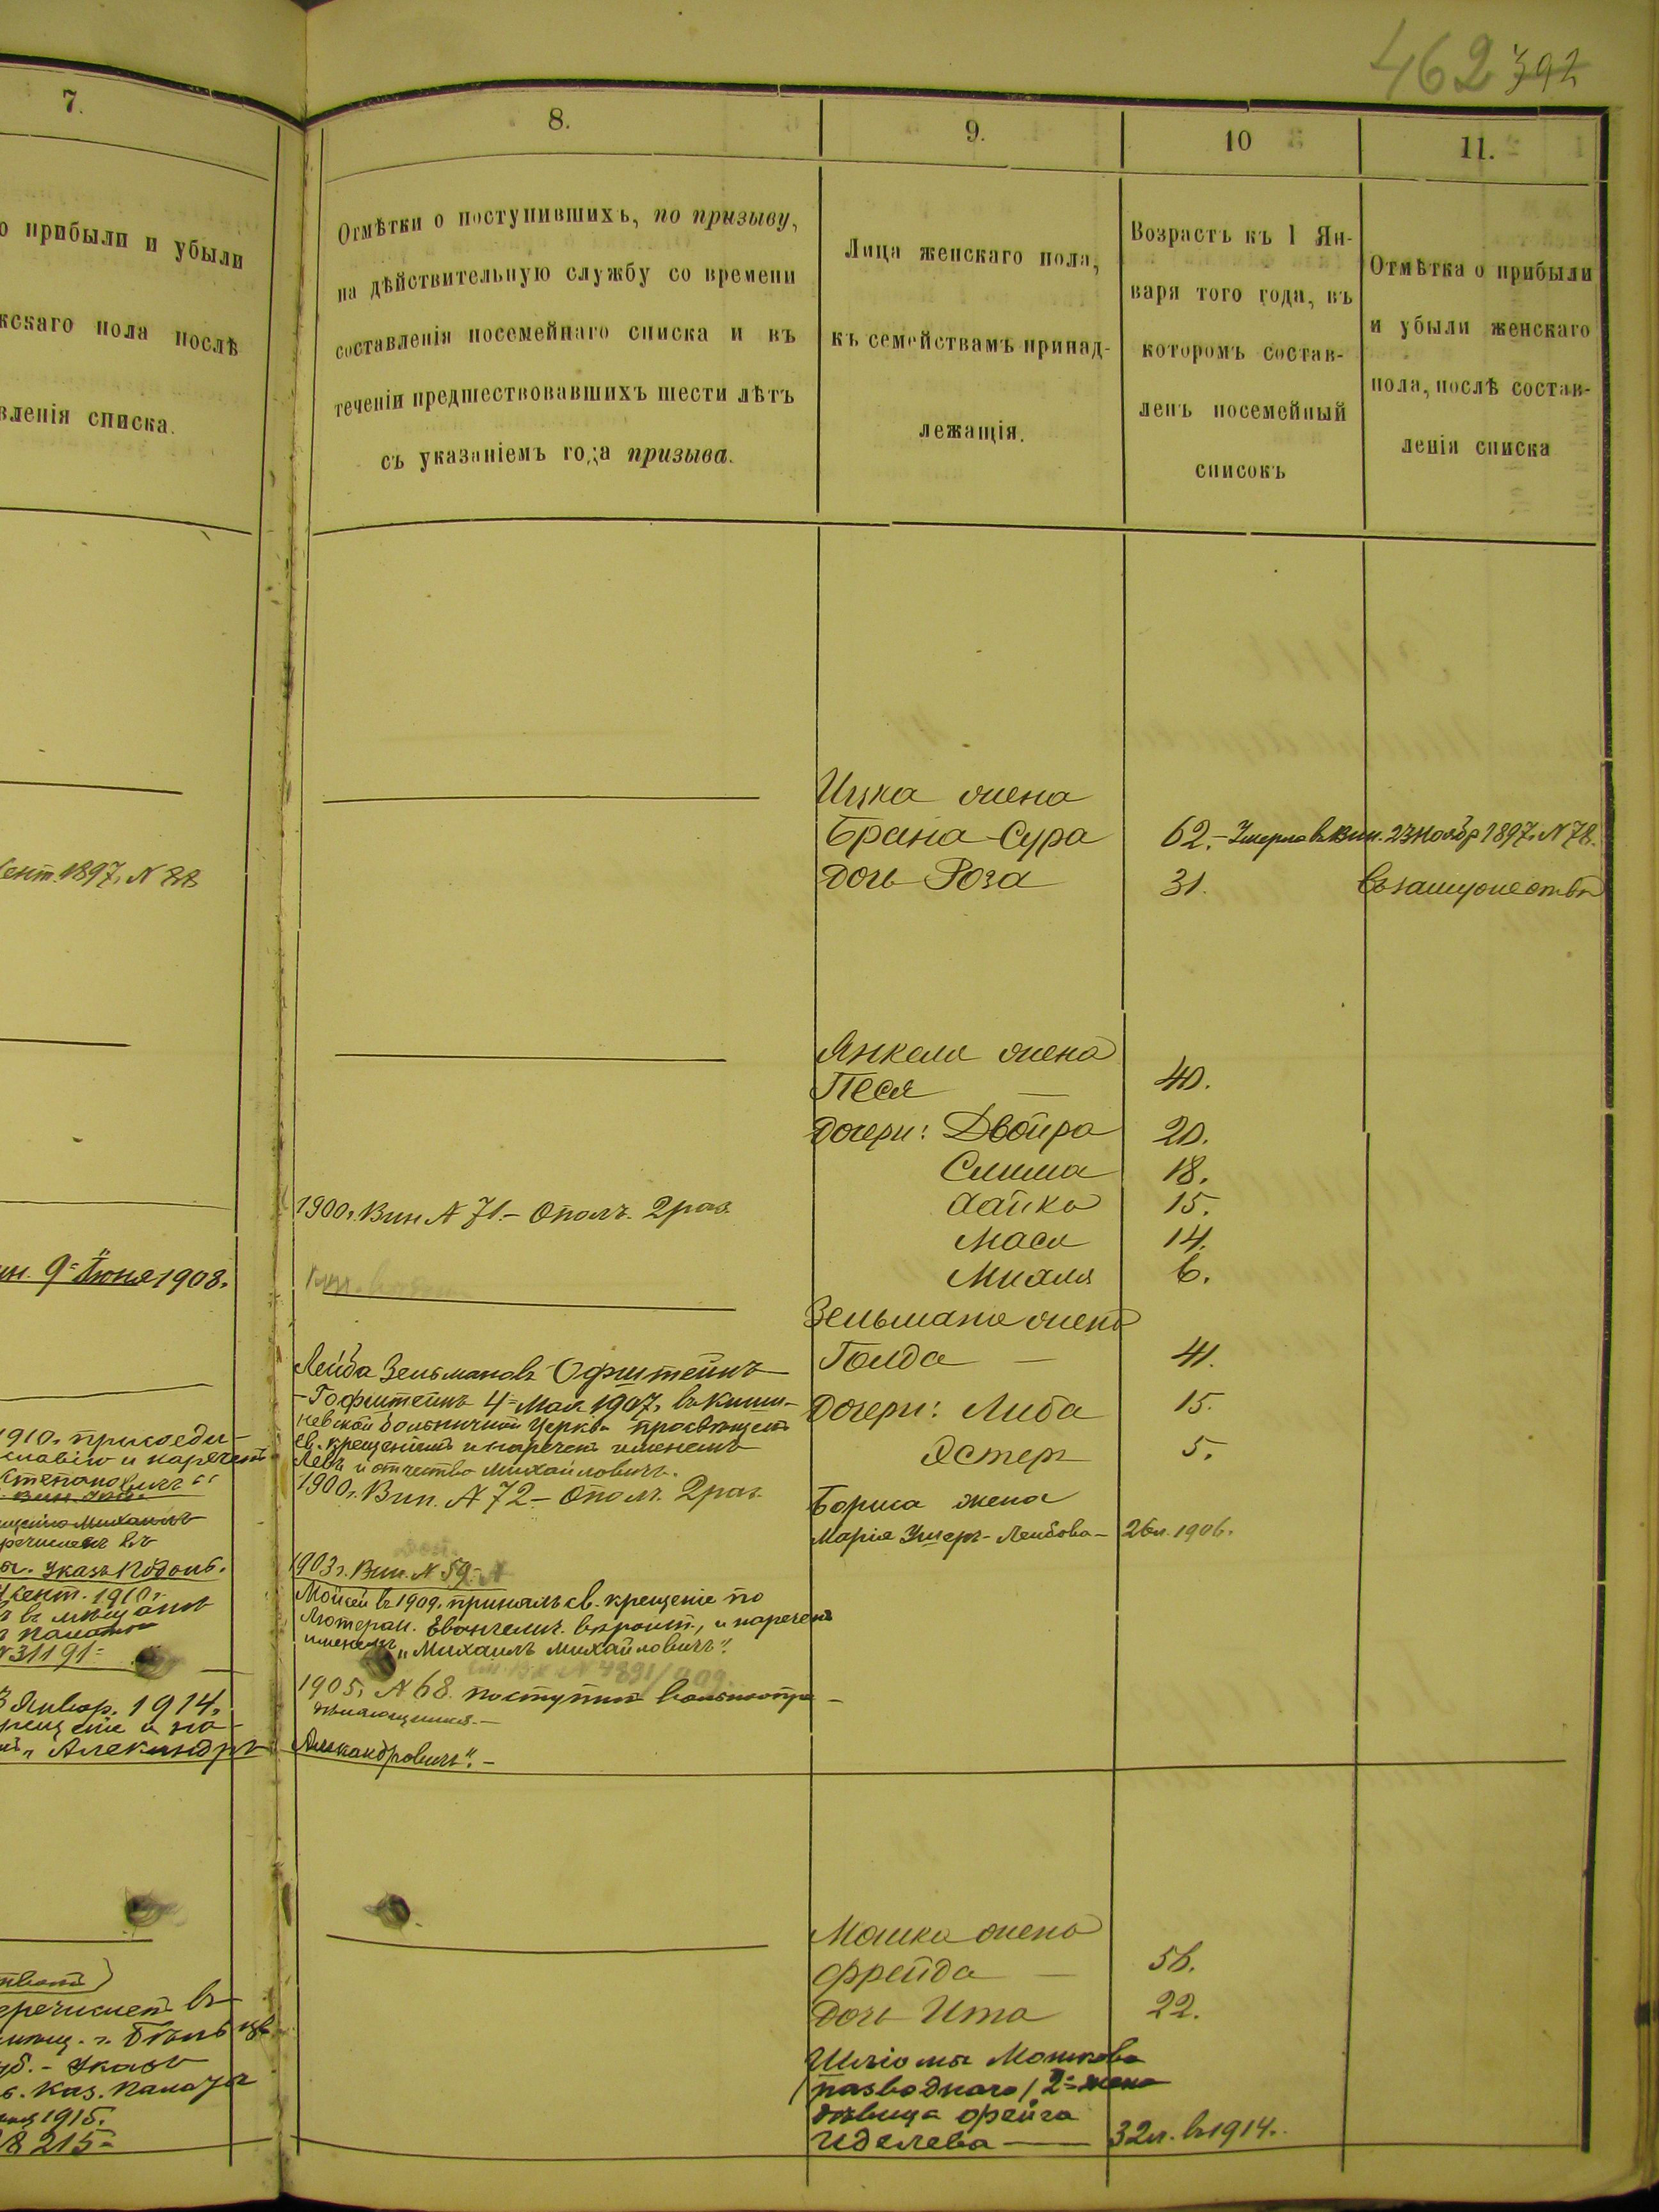 462 392
7.
о прибыли и убыли
жскаго пола послѣ
вленія списка.
ент. 1897, N 88
ин. 9 Іюня 1908.
1910. присоеди-
славію и нареченъ
Степановичъ"
речисленъ въ
Указъ Подоль.
сент. 1910 г.
въ мѣщане
N 31191
Январ. 1914,
рещеніе и на-
„Александръ
еречисленъ въ
г. Бѣльцъ
Указъ
Каз. Палаты
1915.
8215
8.
Отмѣтки о поступившихъ, по призыву,
на дѣйствительную службу со времени
составленія посемейнаго списка и въ
теченіи предшествовавшихъ шести лѣтъ
съ указаніемъ года призыва.
1900 г. Вин N 71.- Ополч. 2 раз.
Лейба Зельмановъ Офштейнъ
- Гофштейнъ 4 Мая 1907, въ Киши-
невской больничной Церкви просвѣщенъ
св. крещеніемъ и нареченъ именемъ
Левъ и отчество Михайловичъ.
1900 г. Вин. N 72 - Ополч. 2 раз.
1903 г. Вин. N 59.-
Мойсей въ 1909, принялъ св. крещеніе по
Лютеран. Евангелич. вѣроисп., и нареченъ
именемъ „Михаилъ Михайловичъ".
1905, N 68. поступилъ вольноопре-
дѣляющимся.-
Александровичъ".-
9.
Лица женскаго пола,
къ семействамъ принад-
лежащія.
Ицка жена
Брана-Сура
дочь Роза
Янкеля жена
Песя
дочери: Двойра
Сима
Хайка
Мася
Михля
Зельмана жена
Голда
дочери: Либа
Эстер
Бориса жена
Марія Умеръ-Лейбова-
Мошка жена
Фрейда
дочь Ита
Шліомы Мошкова
/разводнаго/ 2 жена
дѣвица Фейга
Иделева
10
Возрастъ къ 1 Ян-
варя того года, въ
которомъ состав-
ленъ посемейный
списокъ
62.- Умерла въ Вин. 23 Ноябр 1897, N 78.
31.
40.
20.
18.
15.
14.
6.
41.
15.
5.
26 л. 1906.
56.
22.
32 л. въ 1914.
11.
Отмѣтка о прибыли
и убыли женскаго
пола, послѣ состав-
ленія списка
въ замужествѣ